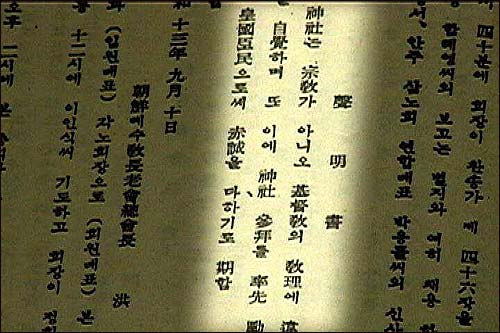 四十분에 회장이 환송가 제 四十六장을
함태영씨의 보고는 별지와 여히 채용하
안주 삼노회 연합대표 박응률씨의 신사
聲明書
神社는 宗敎가 아니오 基督敎의 敎理에 違
自覺하며 또 이에 神社 參拜를 率先 勵
皇國臣民으로써 赤誠을 다하기로 期함
和十三年九月十日
朝鮮예수敎長老會總會長 洪
(임원대표) 각노회장으로 (회원대표) 본
十二시에 이인식씨 기도하고 회장이 정회
오후 二시에 본